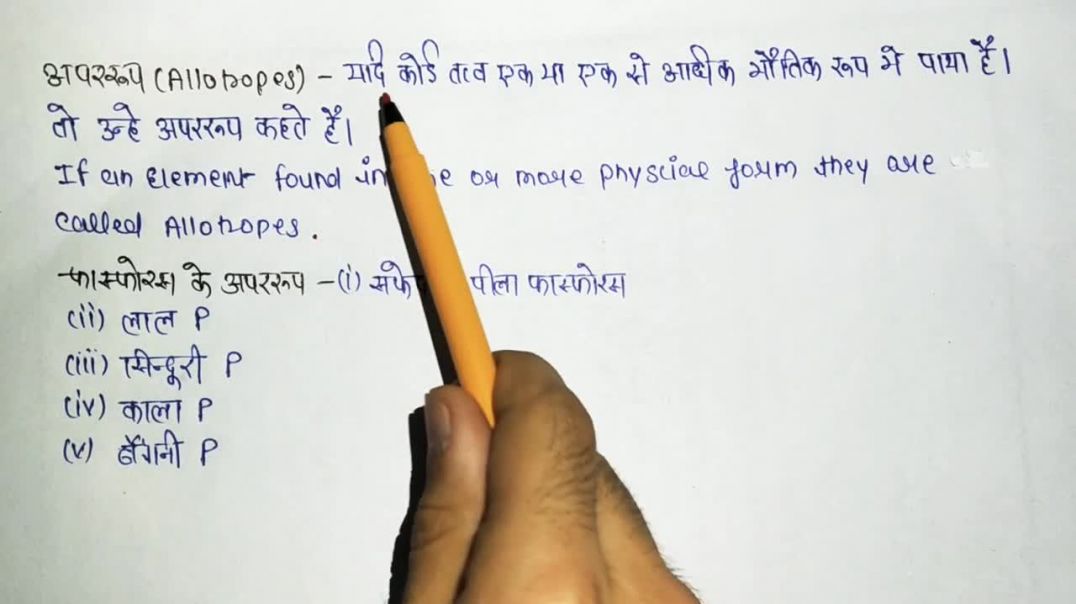 अपररूप (Allotropes) - यदि कोई तत्व एक या एक से अधिक भौतिक रूप मे पाया हैं।
तो उन्हे अपररूप कहते हैं।
If an Element found in or more physcial form they are
called Allotropes.
फास्फोरस के अपररूप - (i) सफे पीला फास्फोरस
(ii) लाल P
(iii) सिन्दूरी P
(iv) काला P
(v) बैंगनी P